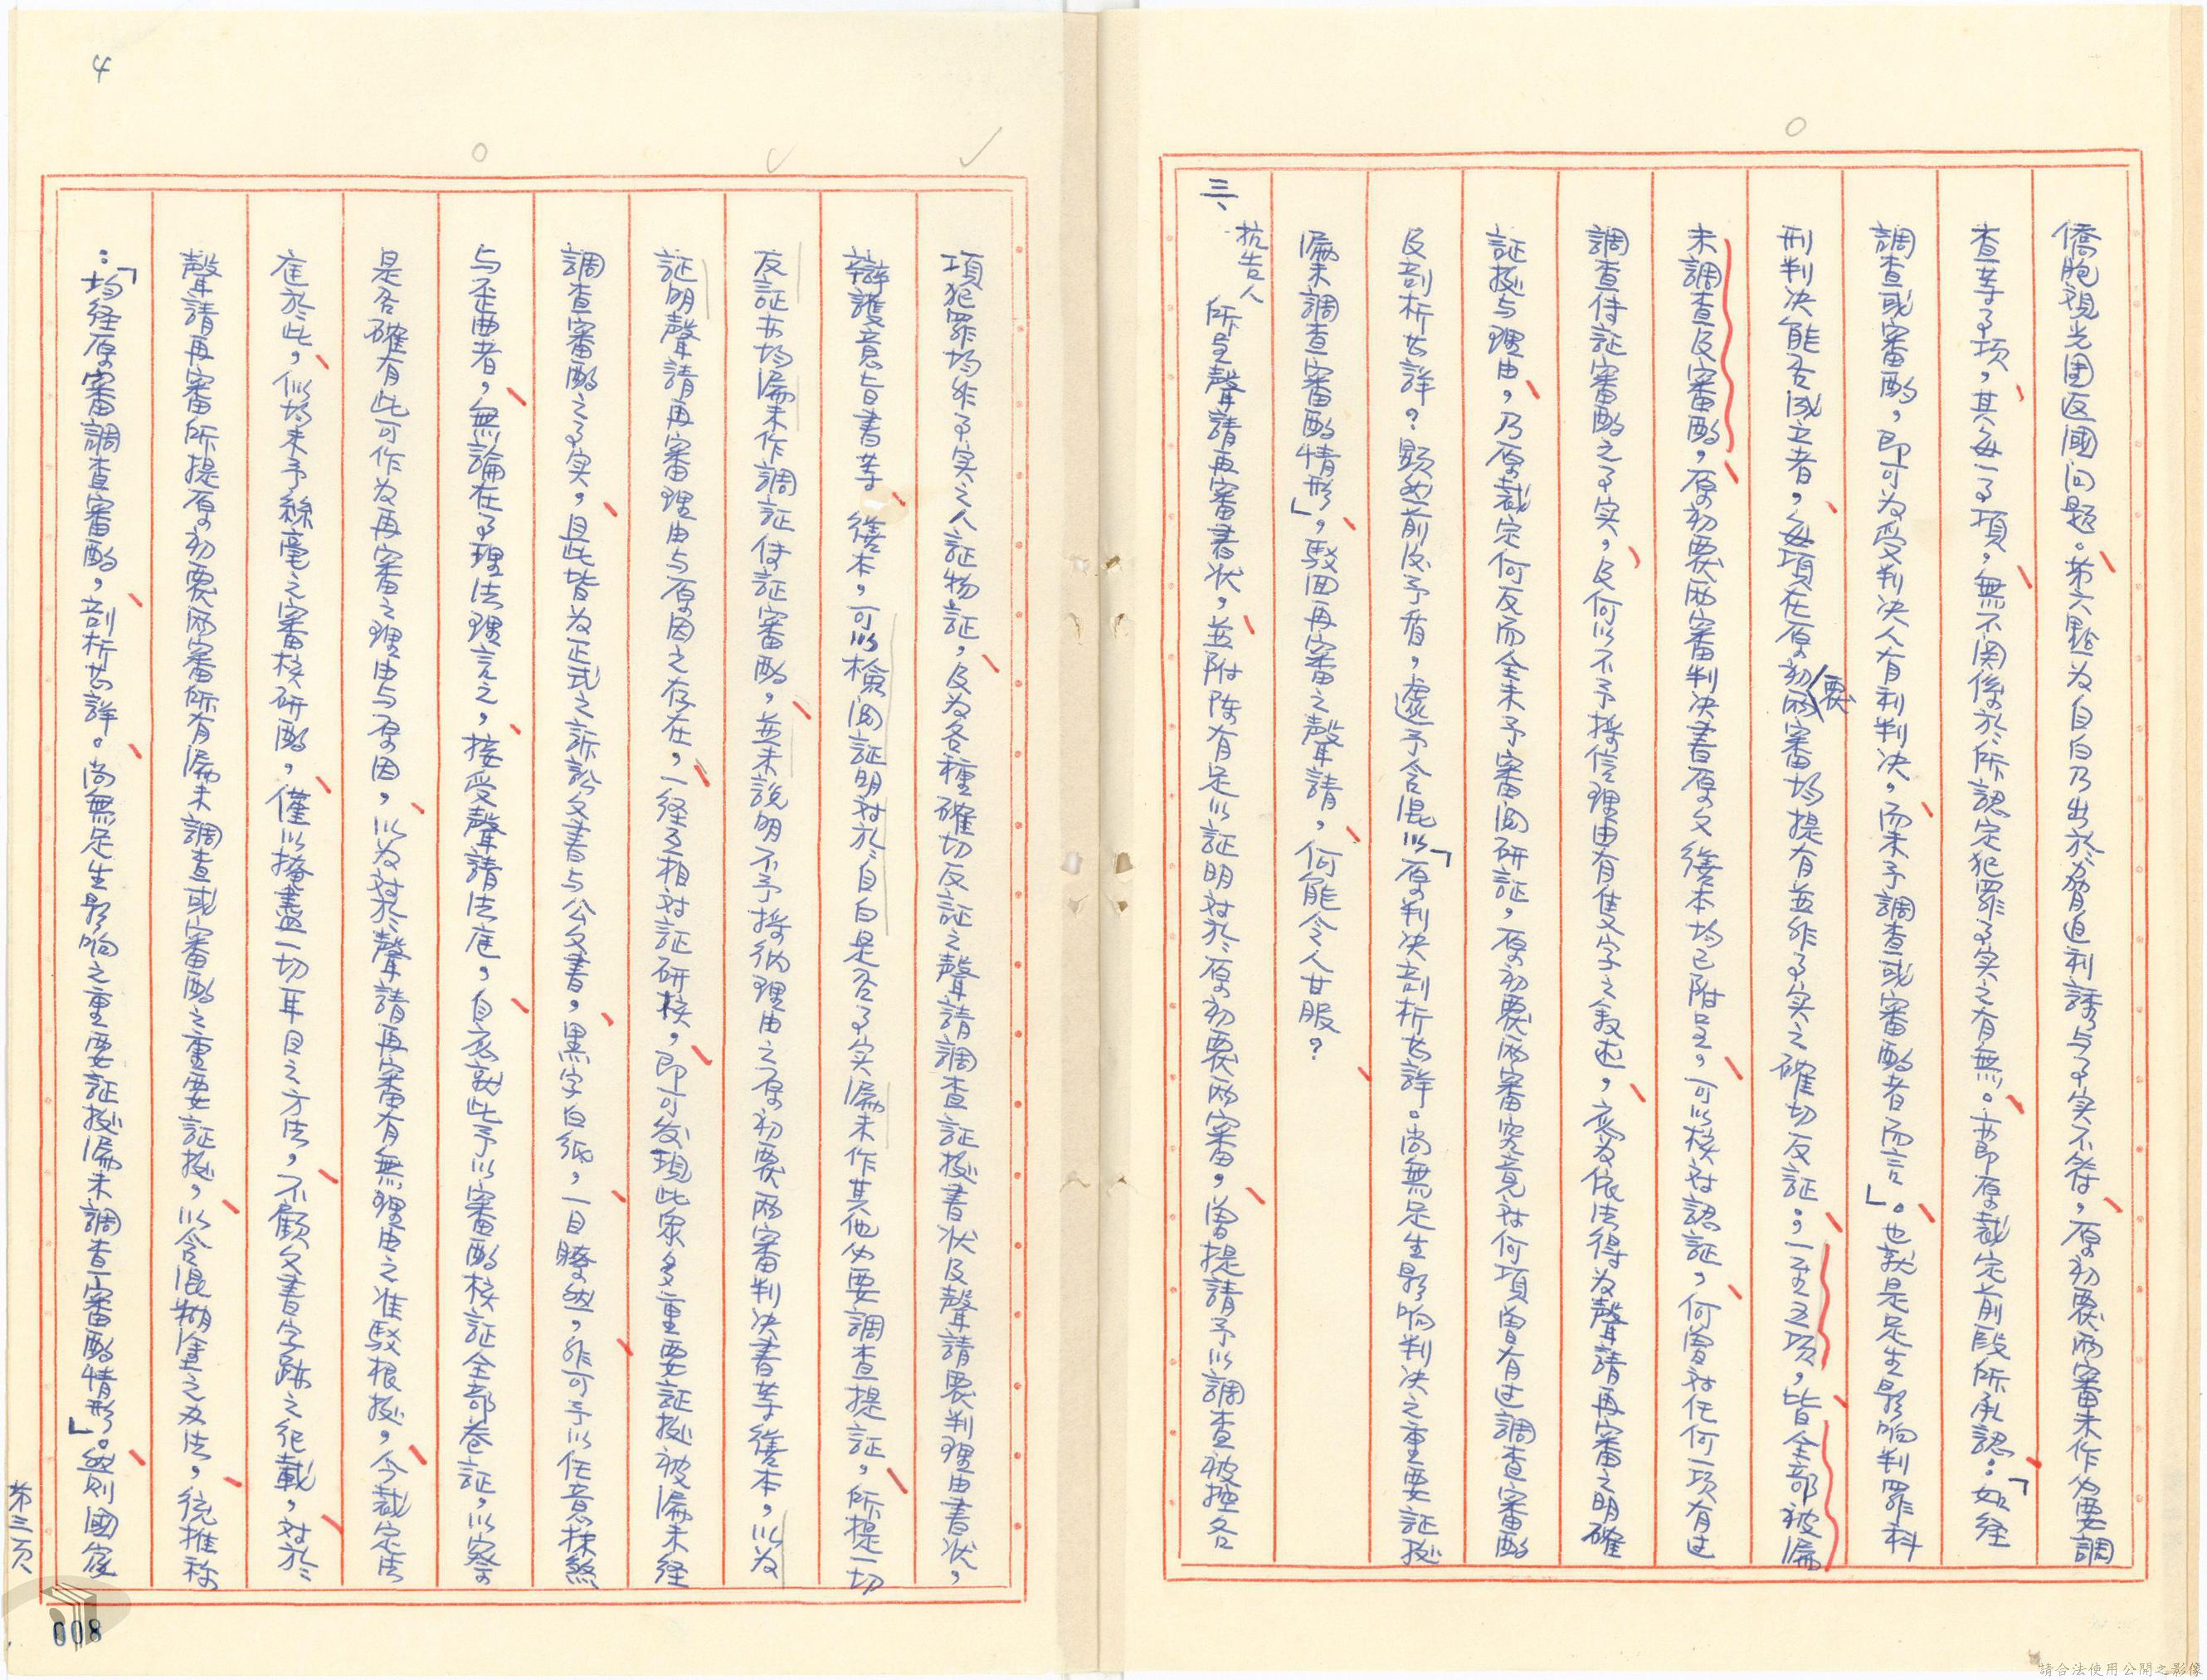 僑胞視光團返國问題。第六點為自白乃出於脅迫利誘与事实不符，原初覆两審未作必要調
查等事項，其每一事項，無不関係於所認定犯罪事实之有無。亦即原裁定前段所承認：「如経
調查或審酌，即可为受判决人有利判决，而未予調查或審酌者而言」。也就是足生影响判罪科
刑判决能否成立者，每項在原初覆两審均提有並非事实之確切反証。一至五項，皆全部被漏
未調查及審酌，原初覆两審判决書原文繕本均已附呈，可以核对認証，何曾对任何一項有过
調查付証審酌之事实，及何以不予採信理由有隻字之敘述，底为依法得为聲請再審之明確
証据与理由，乃原裁定何反而全未予審閲研証，原初覆两審究竟对何項曾有过調查審酌
及剖析甚詳？顕然前后予盾，遽予含混以「原判决剖析甚詳。尚無足生影响判决之重要証据
漏未調查審酌情形」，駁回再審之聲請，何能令人甘服？
三、抗告人所呈聲請再審書状，並附陈有足以証明对於原初覆两審，曾提請予以調查被控各
項犯罪均非事实之人証物証，及为各種確切反証之聲請調查証据書状及聲請覆判理由書状，
辯護意旨書等繕本，可以檢閲証明对於自白是否事实漏未作其他必要調查提証，所提一切
反証亦均漏未作調証付証審酌，並未說明不予採纳理由之原初覆两審判决書等繕本，以为
証明聲請再審理由与原因之存在，一経互相对証研核，即可发現此眾多重要証据被漏未経
調查審酌之事实，且此皆为正式之訴訟文書与公文書，黑字白纸，一目瞭然，非可予以任意抹煞
与歪曲者，無論在事理法理言之，接受聲請法庭，自底就此予以審酌核証全部卷証，以察
是否確有此可作为再審之理由与原因，以为对於聲請再審有無理由之准駁根据，今裁定法
庭於此，似均未予絲毫之審核研酌，僅以掩盡一切耳目之方法，不顧文書字跡之纪載，对於
聲請再審所提原初覆两審所有漏未調查或審酌之重要証据，以含混糊塗之为法，統推称
：「均经原審調查審酌，剖析甚詳。尚無足生影响之重要証据漏未調查審酌情形」。然則國家
4
第三页
008
請合法使用公開之影像